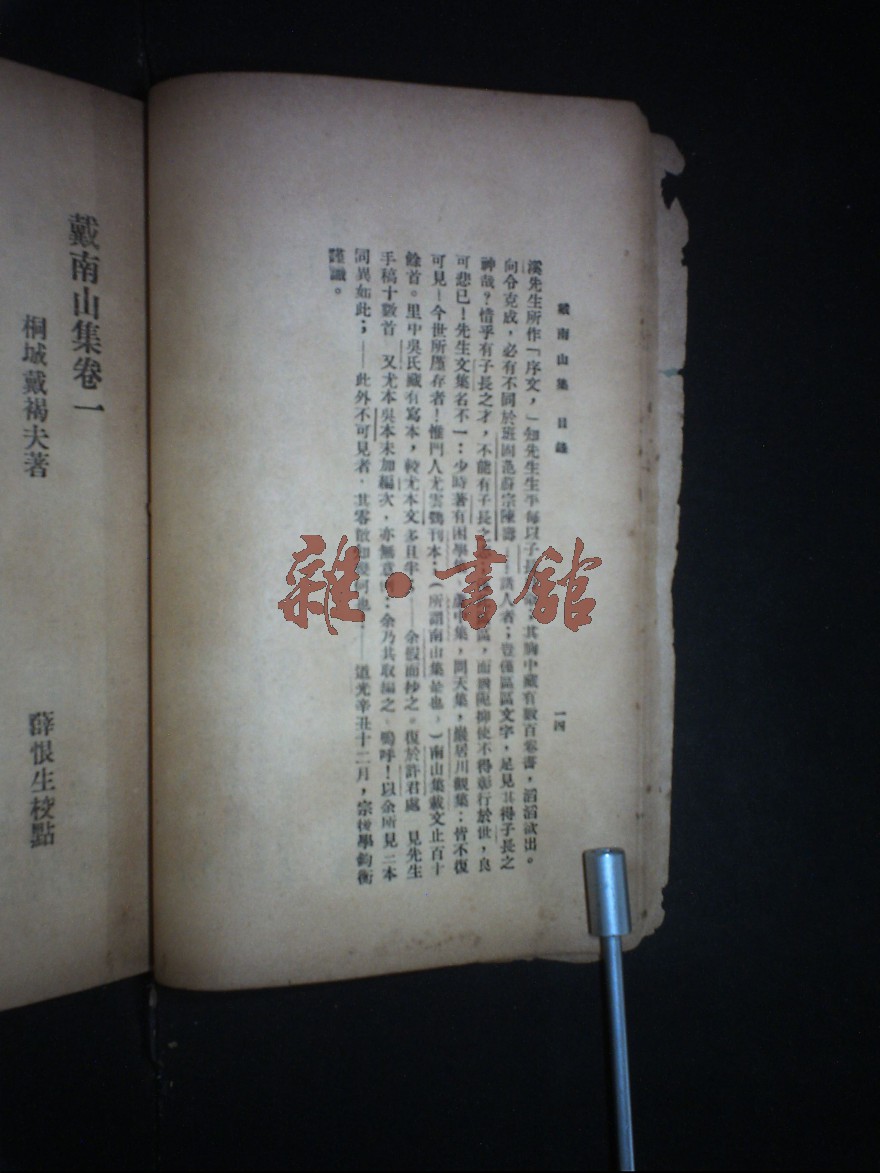 戴南山集 目錄
一四
溪先生所作「序文，」知先生生平每以子長其胸中藏有數百卷書，滔滔欲出。
向令克成，必有不同於班固范蔚宗陳壽者；豈僅區區文字，足見其得子長之
神哉？惜乎有子長之才，不能有子長之區，而國阨抑使不得彰行於世，良
可悲已！先生文集名不一：少時著有困學集，問天集，巖居川觀集：皆不復
可見！今世所僅存者！惟門人尤雲鶚刊本，（所謂南山集是也。）南山集載文止百十
餘首。里中吳氏藏有寫本，較尤本文多且半；——余假而抄之。復於許君處 見先生
手稿十數首 又尤本吳本未加編次，亦無：余乃共取編之、嗚呼！以余所見二本
同異如此；——此外不可見者，其零散——道光辛丑十二月，宗後學鈞衡
謹識。
戴南山集卷一
桐城戴褐夫著
薛恨生校點
雜·書館